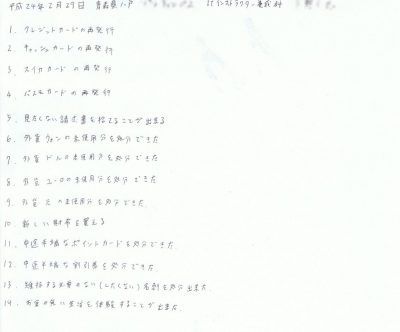 平成24年2月29日 青森県八戸 ITインストラクター養成科
1. クレジットカードの再発行
2. キャッシュカードの再発行
3. スイカカードの再発行
4. パスモカードの再発行
5. 見たくない請求書を捨てることが出来る
6. 外貨ウォンの未使用分を処分できた
7. 外貨ドルの未使用分を処分できた
8. 外貨ユーロの未使用分を処分できた
9. 外貨元の未使用分を処分できた
10. 新しい財布を買える
11. 中途半端なポイントカードを処分できた
12. 中途半端な割引券を処分できた
13. 維持する必要のない(したくない)名刺を処分出来た
14. お金の無い生活を体験することが出来た